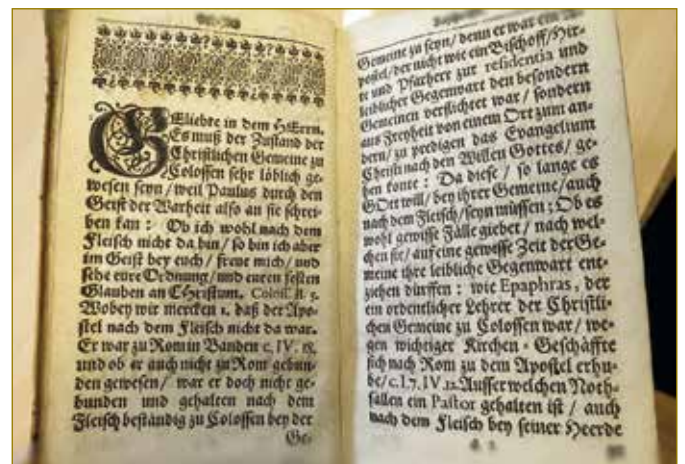 GEliebte in dem HErrn.
Es muß der Zustand der
Christlichen Gemeine zu
Colossen sehr löblich ge-
wesen seyn / weil Paulus durch den
Geist der Warheit also an sie schrei-
ben kan : Ob ich wohl nach dem
Fleisch nicht da bin / so bin ich aber
im Geist bey euch / freue mich / und
sehe eure Ordnung / und euren festen
Glauben an CHristum. Coloss. II. 5.
Wobey wir mercken 1. daß der Apo-
stel nach dem Fleisch nicht da war.
Er war zu Rom in Banden c. IV. 18.
und ob er auch nicht zu Rom gebun-
den gewesen / war er doch nicht ge-
bunden und gehalten nach dem
Fleisch beständig zu Colossen bey der
Ge-
Gemeine zu seyn / denn er war ein
postel / der nicht wie ein Bischoff / Hir-
te und Pfarherr zur residentia und
leiblicher Gegenwart den besondern
Gemeinen verflichtet war / sondern
aus Freyheit von einem Ort zum an-
dern / zu predigen das Evangelium
Christi nach den Willen Gottes / ge-
hen konte : Da diese / so lange es
GOtt will / bey ihrer Gemeine / auch
nach dem Fleisch / seyn müssen ; Ob es
wohl gewisse Fälle giebet / nach wel-
chen sie / auf eine gewisse Zeit der Ge-
meine ihre leibliche Gegenwart ent-
ziehen dürffen : wie Epaphras, der
ein ordentlicher Lehrer der Christli-
chen Gemeine zu Colossen war / we-
gen wichtiger Kirchen-Geschäffte
sich nach Rom zu dem Apostel erhu-
be / c. I. 7. IV. 12. Ausser welchen Noth-
fällen ein Pastor gehalten ist / auch
nach dem Fleisch bey seiner Heerde